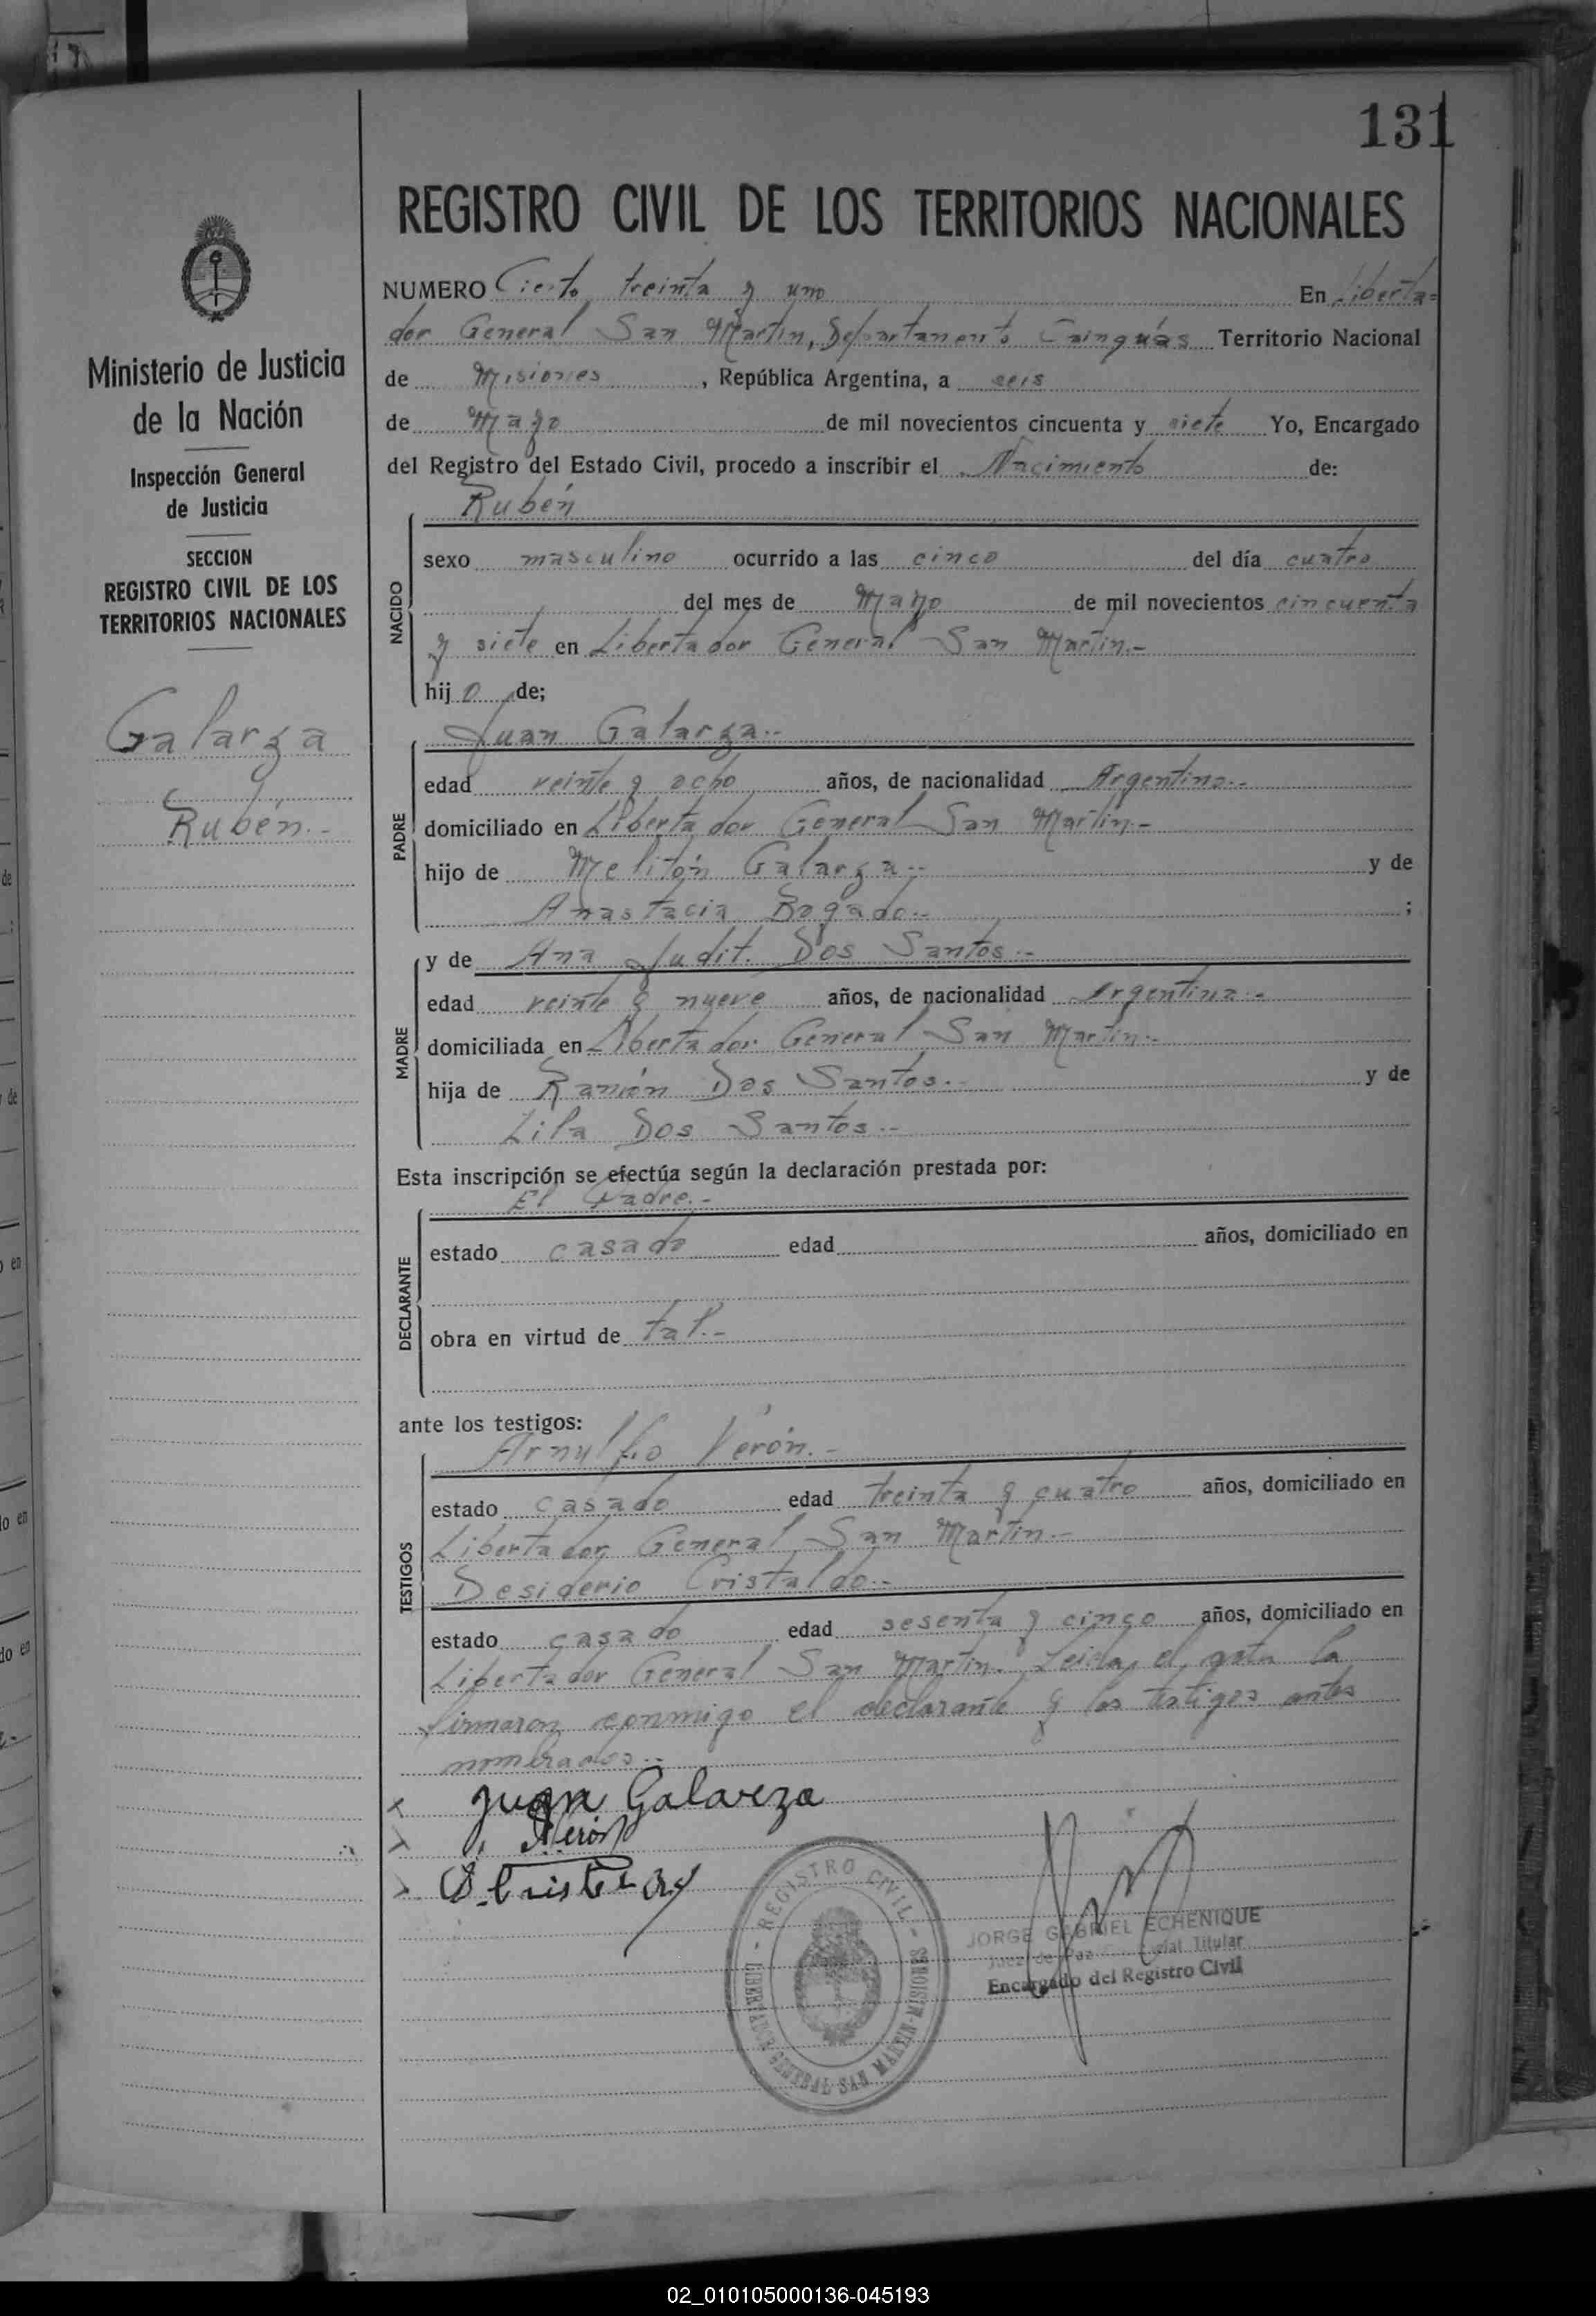 131
REGISTRO CIVIL DE LOS TERRITORIOS NACIONALES
Ministerio de Justicia
de la Nación
Inspección General
de Justicia
SECCION
REGISTRO CIVIL DE LOS
TERRITORIOS NACIONALES
Galarza
Rubén.-
NUMERO Ciento treinta y uno En Liberta=
dor General San Martín, Departamento Cainguás Territorio Nacional
de Misiones, República Argentina, a seis
de Mayo de mil novecientos cincuenta y siete Yo, Encargado
del Registro del Estado Civil, procedo a inscribir el Nacimiento de:
Rubén
NACIDO
sexo masculino ocurrido a las cinco del día cuatro
del mes de Mayo de mil novecientos cincuenta
y siete en Libertador General San Martin.-
hijo de;
Juan Galarza.-
PADRE
edad veinte y ocho años, de nacionalidad Argentina.-
domiciliado en Libertador General San Martin.-
hijo de Melitón Galarza.- y de
Anastacia Bogado.- ;
y de Ana Judit Dos Santos.-
MADRE
edad veinte y nueve años, de nacionalidad Argentina.-
domiciliada en Libertador General San Martin.-
hija de Ramón Dos Santos.- y de
Lila Dos Santos.-
Esta inscripción se efectúa según la declaración prestada por:
El Padre.-
DECLARANTE
estado casado edad años, domiciliado en
obra en virtud de tal.-
ante los testigos:
Arnulfo Verón.-
TESTIGOS
estado casado edad treinta y cuatro años, domiciliado en
Libertador General San Martin.-
Desiderio Cristaldo.-
estado casado edad sesenta y cinco años, domiciliado en
Libertador General San Martin. Leida el acta la
firmaron conmigo el declarante y los testigos antes
nombrados.-
Juan Galarza
Verón
D. Cristaldo
REGISTRO CIVIL - LIBERTADOR GENERAL SAN MARTIN-MISIONES -
JORGE GABRIEL ECHENIQUE
Juez de Paz Titular
Encargado del Registro Civil
02_010105000136-045193